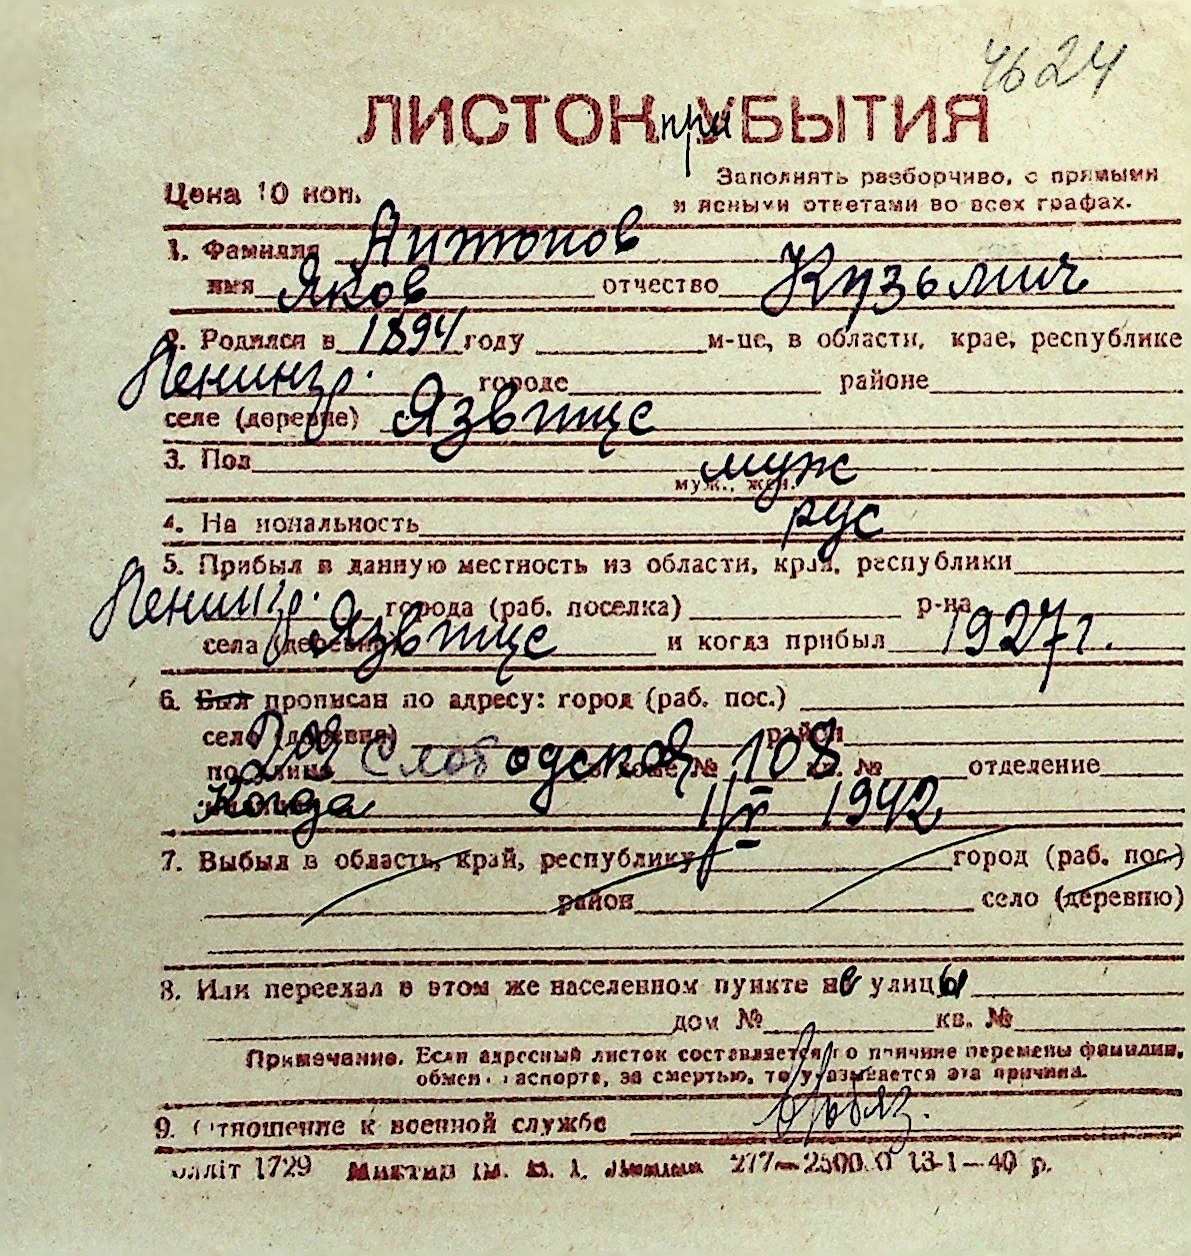 4624
ЛИСТОК при УБЫТИЯ
Цена 10 коп.
Заполнять разборчиво, с прямыми
и ясными ответами во всех графах.
1. Фамилия Антонов
имя Яков отчество Кузьмич
2. Родился в 1894 году м-це, в области, крае, республике
Ленингр. городе районе
селе (деревне) Язвище
3. Пол муж
муж., жен.
4. На иональность рус
5. Прибыл в данную местность из области, края, республики
Ленингр. города (раб. поселка) р-на
села (деревни) Язвище и когда прибыл 1927 г.
6. Был прописан по адресу: город (раб. пос.)
село (деревня) район
по улице 2ая Слободская в доме № 108 кв. № отделение
Когда 1/V 1942
7. Выбыл в область, край, республику город (раб. пос.)
район село (деревню)
8. Или переехал в этом же населенном пункте не улицы
дом № кв. №
Примечание. Если адресный листок составляется по причине перемены фамилии,
обмен паспорта, за смертью, то указывается эта причина.
9. Отношение к военной службе
1729 277—2500.0 13-1—40 р.